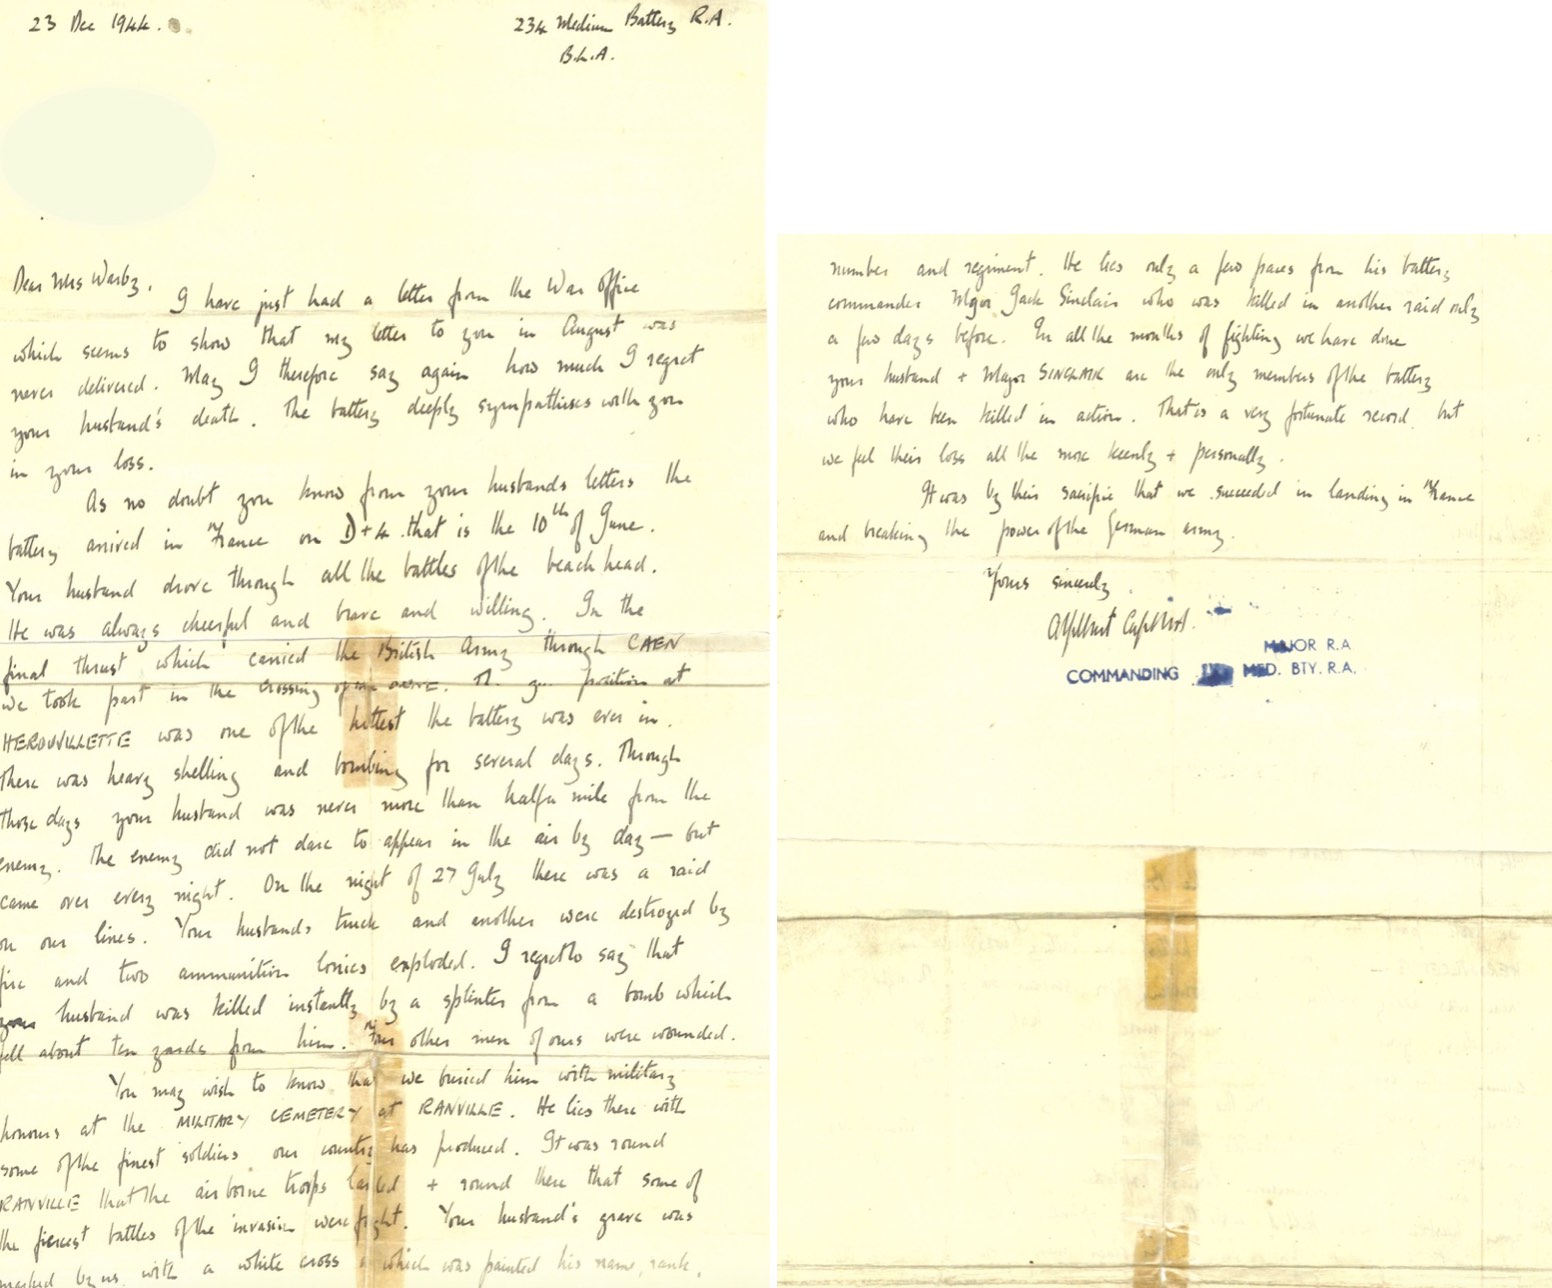 23 Dec 1944.
234 Medium Battery R.A.
B.L.A.
Dear Mrs Warby,
I have just had a letter from the War Office
which seems to show that my letter to you in August was
never delivered. May I therefore say again how much I regret
your husband's death. The battery deeply sympathises with you
in your loss.
As no doubt you know from your husbands letters the
battery arrived in France on D+4. that is the 10th of June.
Your husband drove through all the battles of the beach head.
He was always cheerful and brave and willing. In the
final thrust which carried the British Army through CAEN
we took part in the crossing of the position at
HEROUVILLETTE was one of the hottest the battery was ever in.
There was heavy shelling and bombing for several days. Through
those days your husband was never more than half a mile from the
enemy. The enemy did not dare to appear in the air by day — but
came over every night. On the night of 27 July there was a raid
on our lines. Your husbands truck and another were destroyed by
fire and two ammunition lorries exploded. I regret to say that
your husband was killed instantly by a splinter from a bomb which
fell about ten yards from him. Four other men of ours were wounded.
You may wish to know that we buried him with military
honours at the MILITARY CEMETERY at RANVILLE. He lies there with
some of the finest soldiers our country has produced. It was round
RANVILLE that the airborne troops landed + round there that some of
the fiercest battles of the invasion were fought. Your husband's grave was
marked by us with a white cross on which was painted his name, rank,
number and regiment. He lies only a few paces from his battery
commander Major Jack Sinclair who was killed in another raid only
a few days before. In all the months of fighting we have done
your husband + Major SINCLAIR are the only members of the battery
who have been killed in action. That is a very fortunate record, but
we feel their loss all the more keenly + personally.
It was by their sacrifice that we succeeded in landing in France
and breaking the power of the German army.
Yours sincerely
MAJOR R.A
COMMANDING MED. BTY. R.A.